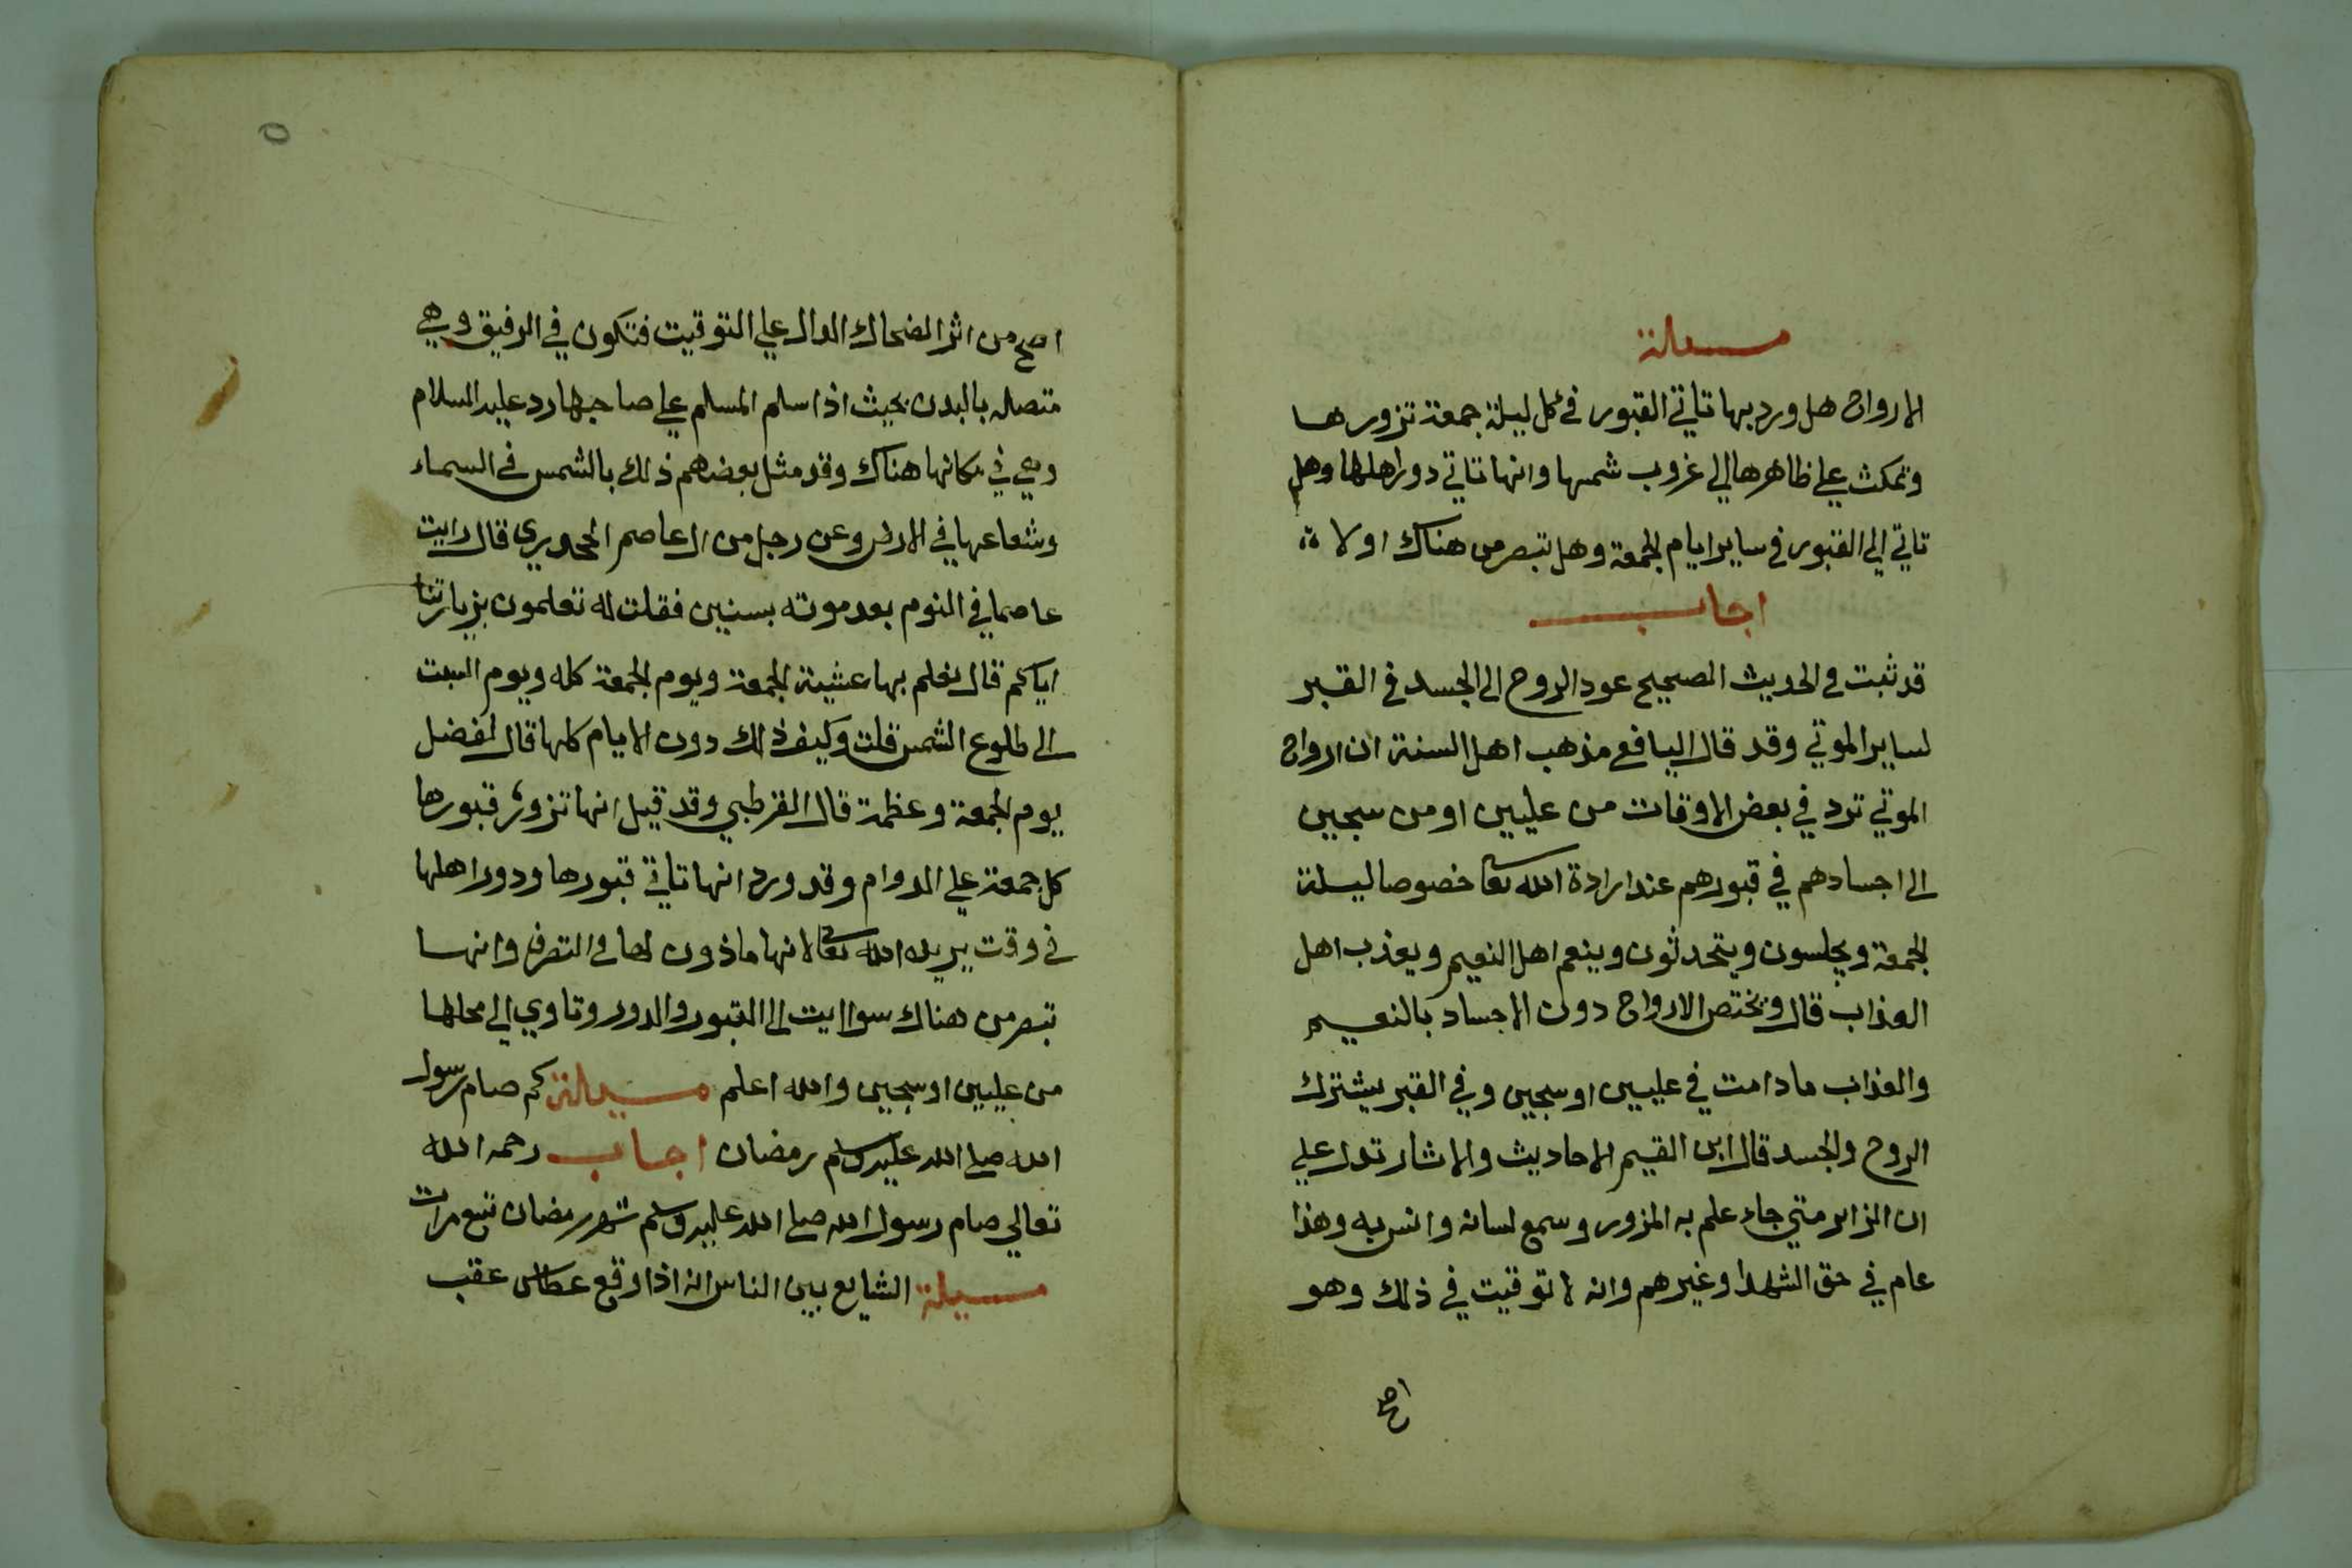 مسالة
الارواح هل ورد بها تاتي القبور في كل ليلة جمعة تزورها
وتمكث على ظاهرها الي غروب شمسها وانها تاتي دور اهلها وهل
تاتي الي القبور في ساير ايام الجمعة وهل تبصر من هناك او لا
اجاب
قد ثبت في الحديث الصحيح عود الروح الى الجسد في القبر
لساير الموتي وقد قال اليافعي مذهب اهل السنة ان ارواح
الموتي ترد في بعض الاوقات من عليين او من سجين
الى اجسادهم في قبورهم عند ارادة الله تعا خصوصا ليلة
الجمعة ويجلسون ويتحدثون وينعم اهل النعيم ويعذب اهل
العذاب قال ويختص الارواح دون الاجساد بالنعيم
والعذاب ما دامت في عليين او سجين وفي القبر يشترك
الروح والجسد قال ابن القيم الاحاديث والاثار تدل علي
ان الزاير متي جاء علم به المزور وسمع لسانه وانس به وهذا
عام في حق الشهدا وغيرهم وانه لا توقيت في ذلك وهو
اصح
٥
اصح من اثر الضحاك الدال علي التوقيت فتكون في الرفيق وهي
متصله بالبدن بحيث اذا سلم المسلم علي صاحبها رد عليه السلام
وهي في مكانها هناك وقد مثل بعضهم ذلك بالشمس في السماء
وشعاعها في الارض وعن رجل من ال عاصم الجحدري قال رايت
عاصما في النوم بعد موته بسنين فقلت له تعلمون بزيارتنا
اياكم قال نعلم بها عشية الجمعة ويوم الجمعة كله ويوم السبت
الى طلوع الشمس قلت وكيف ذلك دون الايام كلها قال لفضل
يوم الجمعة وعظمة قال القرطبي وقد قيل انها تزور قبورها
كل جمعة علي الدوام وقد ورد انها تاتي قبورها ودور اهلها
في وقت يريده الله تعا لانها ماذون لها في التصرف وانها
تبصر من هناك سوا اتت الى القبور والدور وتاوي الي محلها
من عليين او سجين والله اعلم مسيلة كم صام رسول
الله صلى الله عليه وسلم رمضان اجاب رحمه الله
تعالي صام رسول الله صلى الله عليه وسلم شهر رمضان تسع مرات
مسيلة الشايع بين الناس انه اذا وقع عطاس عقب